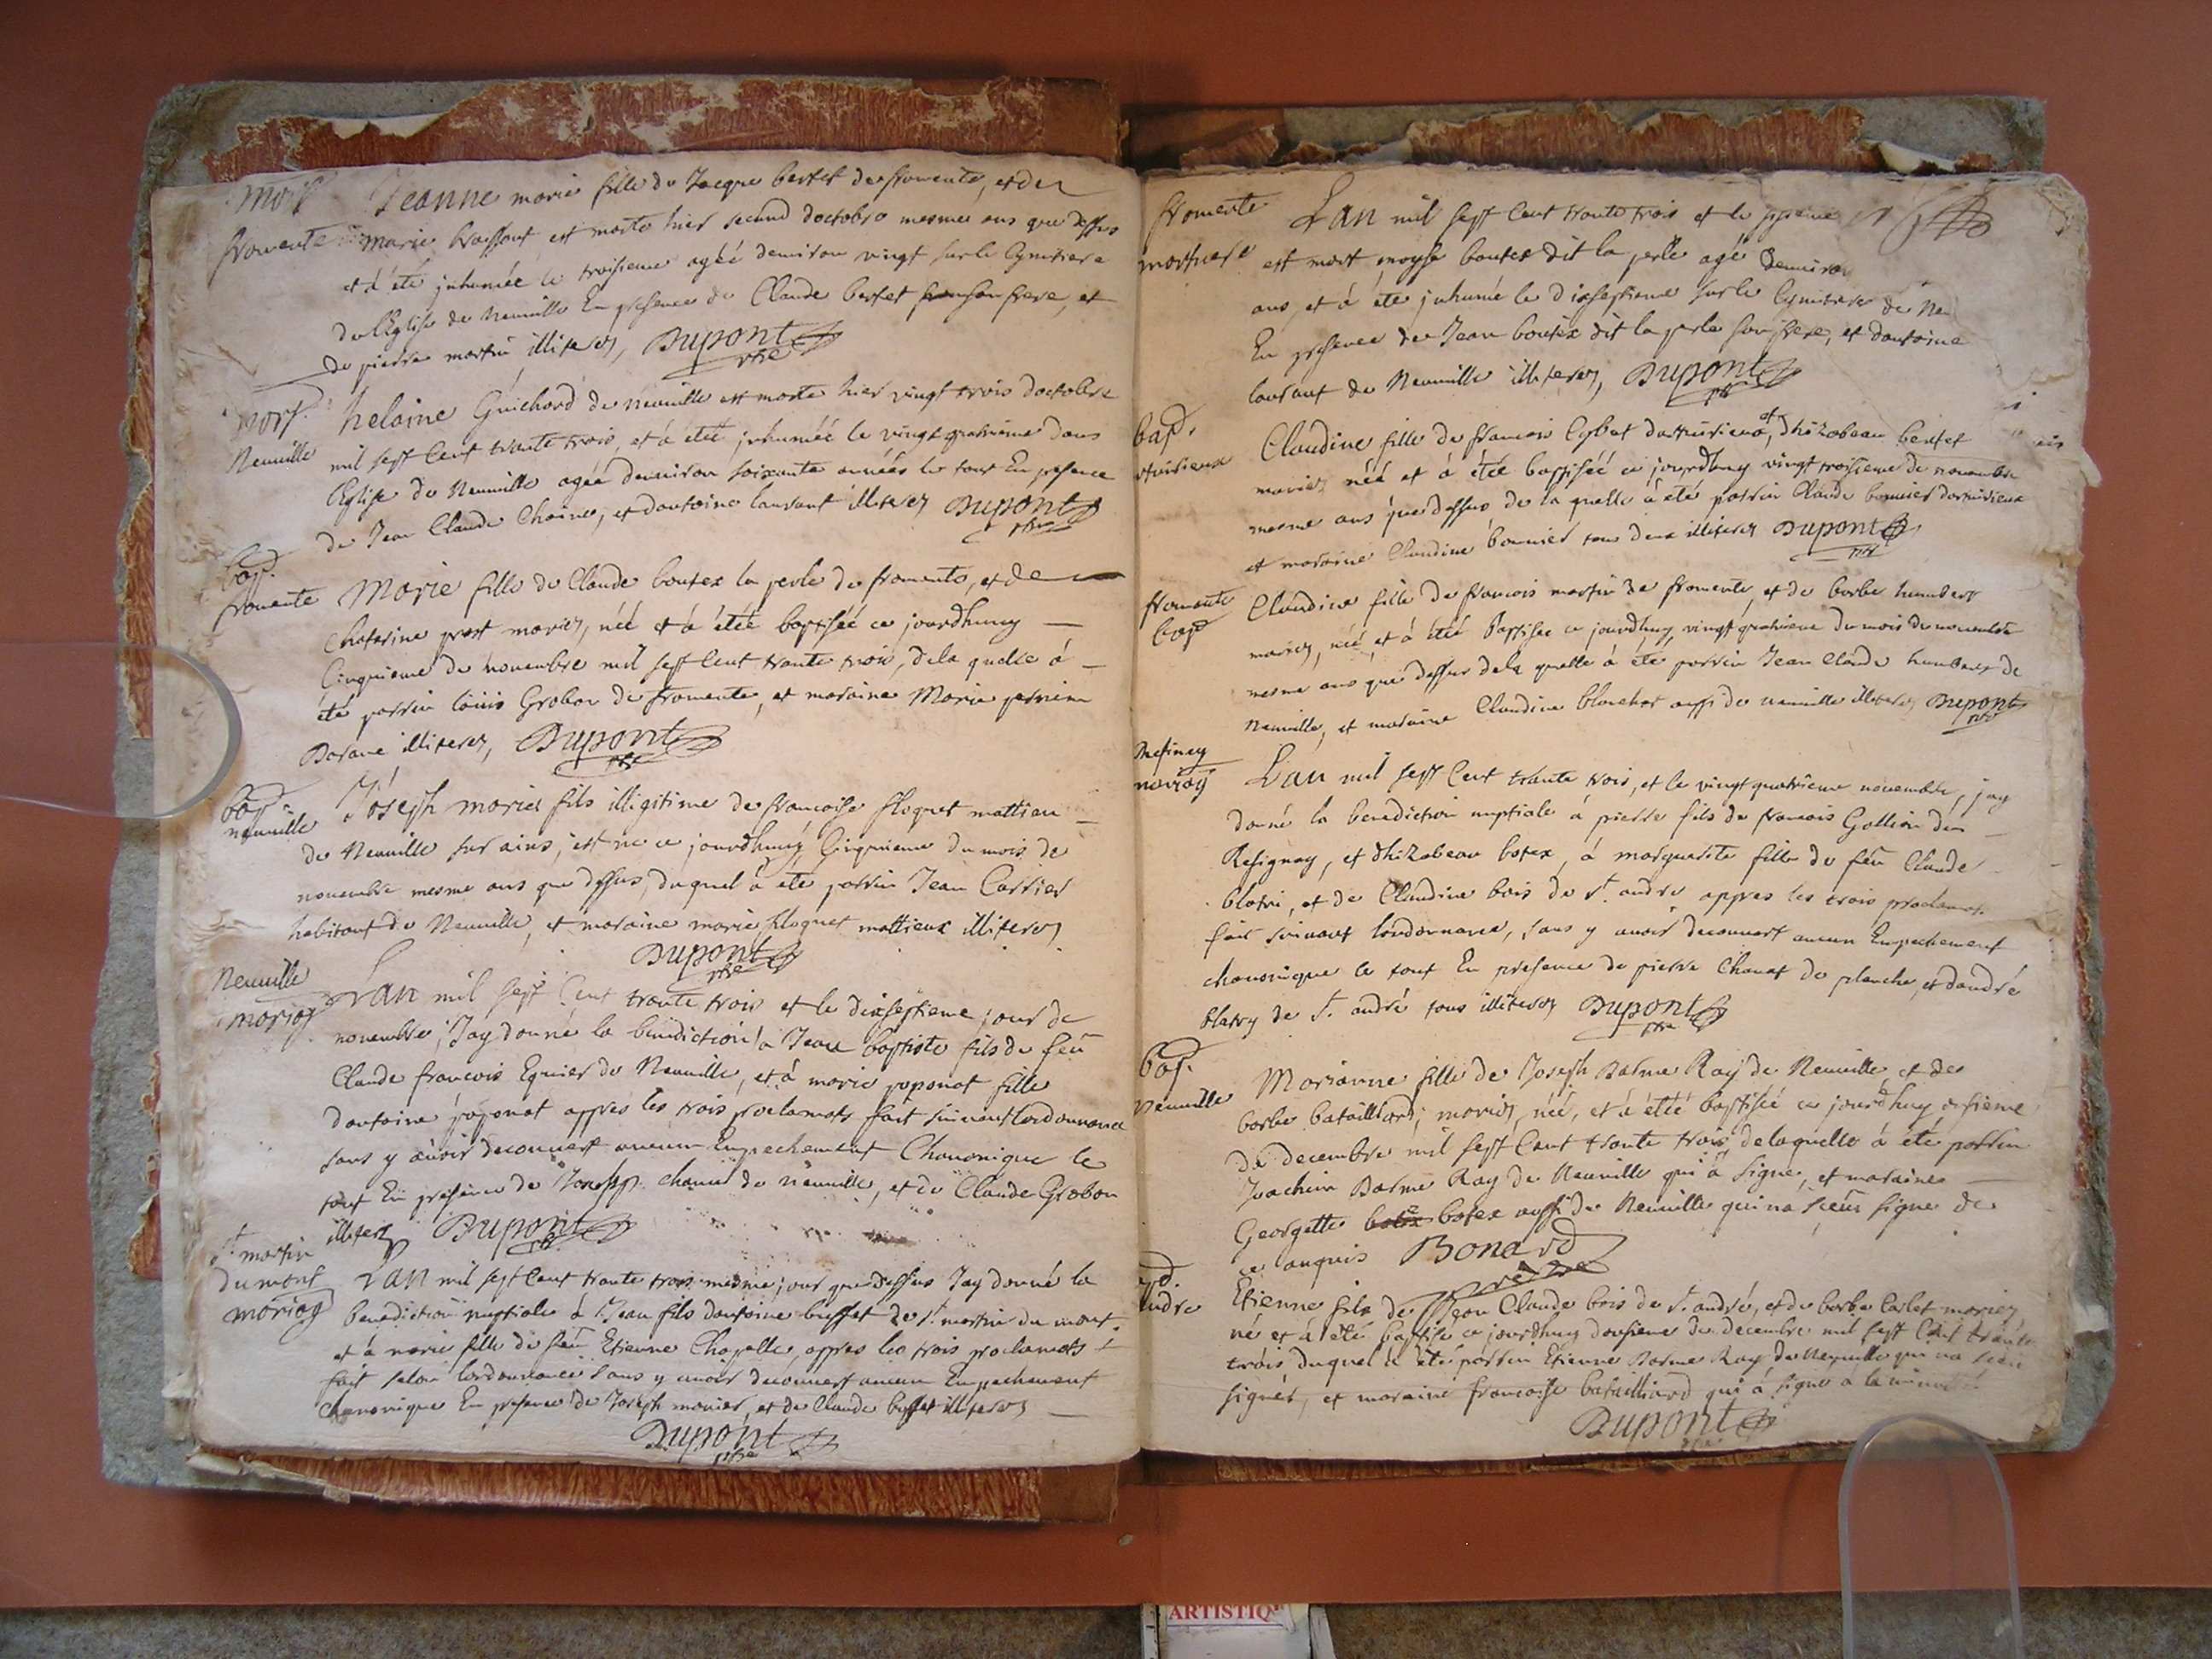 mort
fromente
Jeanne marie fille de Jacque bertet de fromente, et de
marie brossant est morte hier second doctobre mesme ans que dessus
et à été jnhumée le troisieme agéé denviron vingt sur le Cymitiere
de l'Eglise de Neuuille En presence de Claude bertet son frere, et
de pierre martin illiterez, Dupont
ptre
mort.
Neuuille
helaine Guichard de neuuille est morte hier vingt trois doctobre
mil sept Cent trante trois, et à été jnhuméé le vingt quatrieme dans
l'Eglise de Neuuille agéé denviron soixante annéés le tout En presence
de Jean Claude Chaine, et dantoine laurant illiterez Dupont
ptre
bap.
fromente
Marie fille de Claude boutex la perle de fromente, et de
Chaterine prost mariez, néé et à étéé baptiséé ce jourdhuy
Cinquieme de nouembre mil sept Cent trante trois, de la quelle à
été parrin loüis Grobon de fromente, et maraine Marie
illiterez, Dupont
ptre
bap.
neuuille
Joseph marie fils illigitime de francoise floquet mattieu
de Neuuille sur ains, est né ce jourdhuy Cinquieme du mois de
nouembre mesme ans que dessus, duquel à été parrin Jean Carrier
habitant de Neuuille, et maraine marie floquet mattieux illiterez
Dupont
ptre
Neuuille
mariag
Lan mil sept Cent trante trois et le dixseptieme jour de
nouembre, Jay donné la benediction à Jean baptiste fils de feu
Claude francois Eguier de Neuuille, et à marie poponat fille
dantoine poponat appres les trois proclamats fait suiuant lordonnance
sans y auoir decouuert aucun Empechement Chanonique le
tout En presence de Joseph chanel de neuuille, et de Claude Grobon
illiterez Dupont
ptre
St. martin
du mont
mariag
Lan mil sept Cent trante trois mesme jour que dessus Jay donné la
benediction nuptiale à Jean fils dantoine buffet de St. martin du mont
et à marie fille de feu Etienne Chapelle, appres les trois proclamats
fait selon lordonnance sans y auoir decouuert aucun Empechement
Chanonique En presence de Joseph monier, et de Claude buffet illiterez
Dupont
ptre
fromente
mortuere
Lan mil sept Cent trante trois et le
est mort moyse boutex dit la perle agé denviron
ans, et à été jnhumé le dixseptieme sur le Cymitiere de
En presence de Jean boutex dit la perle son frere, et dantoine
laurant de Neuuille illiterez, Dupont
ptre
bap.
Claudine fille de francois Cybet et dhizabeau bertet
mariez néé et à étéé baptiséé ce jourdhuy vingt troisieme de nouembre
mesme ans que dessus de la quelle à été parrin Claude bonnier
et maraine Claudine bonnier tous deux illiterez Dupont
ptre
fromente
bap
Claudine fille de francois martin de fromente, et de barbe humbert
mariez, néé et à étéé Baptisee ce jourdhuy vingt quatrieme du mois de nouembre
mesme ans que dessus de la quelle à été parrin Jean Claude humbert de
Neuuille, et maraine Claudine blanchet aussi de neuuille illiterez Dupont
ptre
Resinay
mariag
L'an mil sept Cent trante trois, et le vingt quatrieme nouembre, jay
donné la benediction nuptiale à pierre fils de francois Gollion de
Resignay, et dhizabeau botex, à marguerite fille de feu Claude
blatri, et de Claudine bois de St. andre appres les trois proclamats
fait suiuant lordonnance, sans y auoir decouuert aucun Empechement
chanonique le tout En presence de pierre Chanat de planche, et dandré
blatry de St. andré tous illiterez Dupont
ptre
bap.
Neuuille
Marianne fille de Joseph Darme Ray de Neuuille et de
barbe bataillard, mariez, néé, et à étéé baptiséé ce jourdhuy onsieme
de decembre mil sept Cent trante trois de laquelle à été parrin
Joachim Darme Ray de Neuuille qui à signé, et maraine
Georgette botex botex aussi de Neuuille qui na sceu signe de
ce anquis Bonard
vicaire
andre
Etienne fils de Jean Claude bois de St. andré, et de barbe Carlet mariez
né et à été baptise ce jourdhuy dousieme de decembre mil sept Cent trante
trois duquel à été parrin Etienne Darme Ray de Neuuille qui na sceu
signér, et maraine francoise bataillard qui à signe a la minute
Dupont
ptre
ARTISTIQ